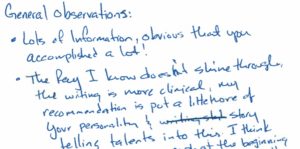 General Observations:
• Lots of Information, obvious that you
accomplished a lot!
• The Roy I know doesn't shine through,
the writing is more clinical, my
recommendation is put a little more of
your personality & story
telling talents into this. I think
at the beginning